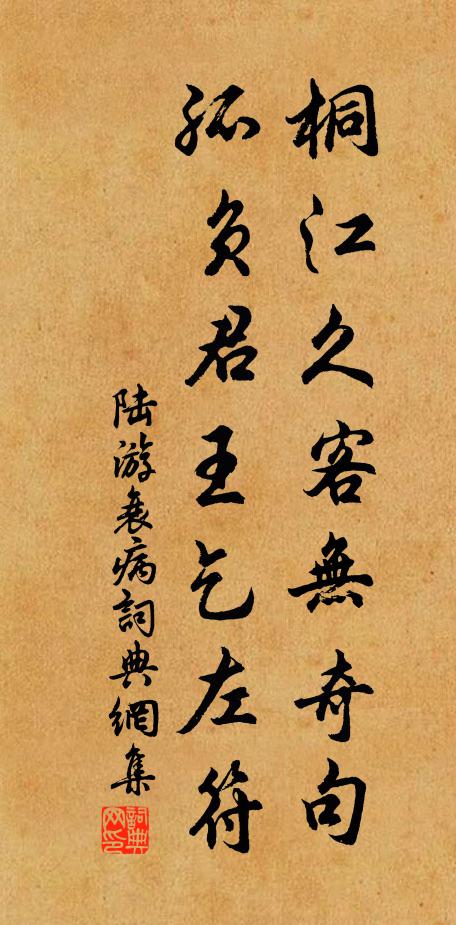 桐江久客無奇句
孤負君王乞左符
陆游衰病詞典網集
詞典网印